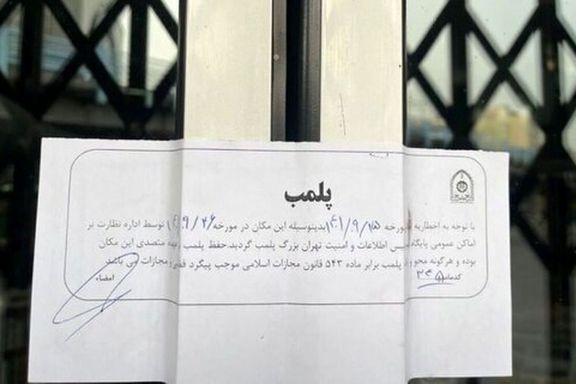 پلمب
با توجه به اخطاریه مورخه ۱۴۰۱/۹/۲۵ بدینوسیله این مکان در مورخه ۹/۲۶ توسط اداره نظارت بر
اماکن عمومی پایگاه پلیس اطلاعات و امنیت تهران بزرگ پلمب گردید.حفظ پلمب بعهده متصدی این مکان
بوده و هرگونه محو پلمب برابر ماده ۵۴۳ قانون مجازات اسلامی موجب پیگرد قضایی و مجازات می باشد.
امضاء